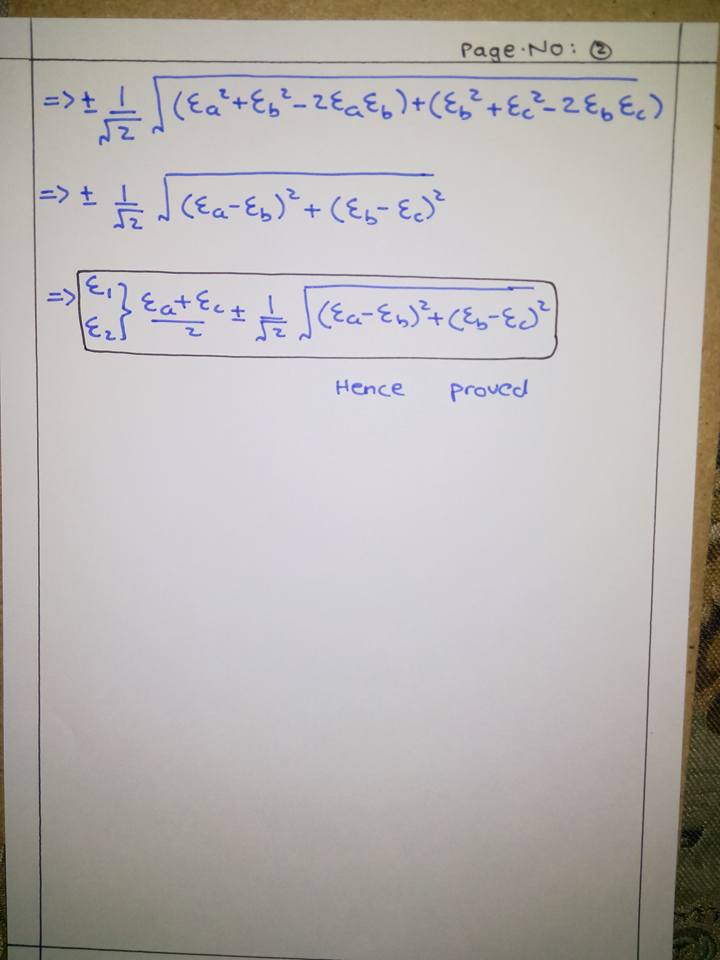 Page.No: ②
=> ± 1/√2 √(εa²+εb²-2εaεb)+(εb²+εc²-2εbεc)
=> ± 1/√2 √(εa-εb)²+(εb-εc)²
=> ε1 ε2} εa+εc/2 ± 1/√2 √(εa-εb)²+(εb-εc)²
Hence proved